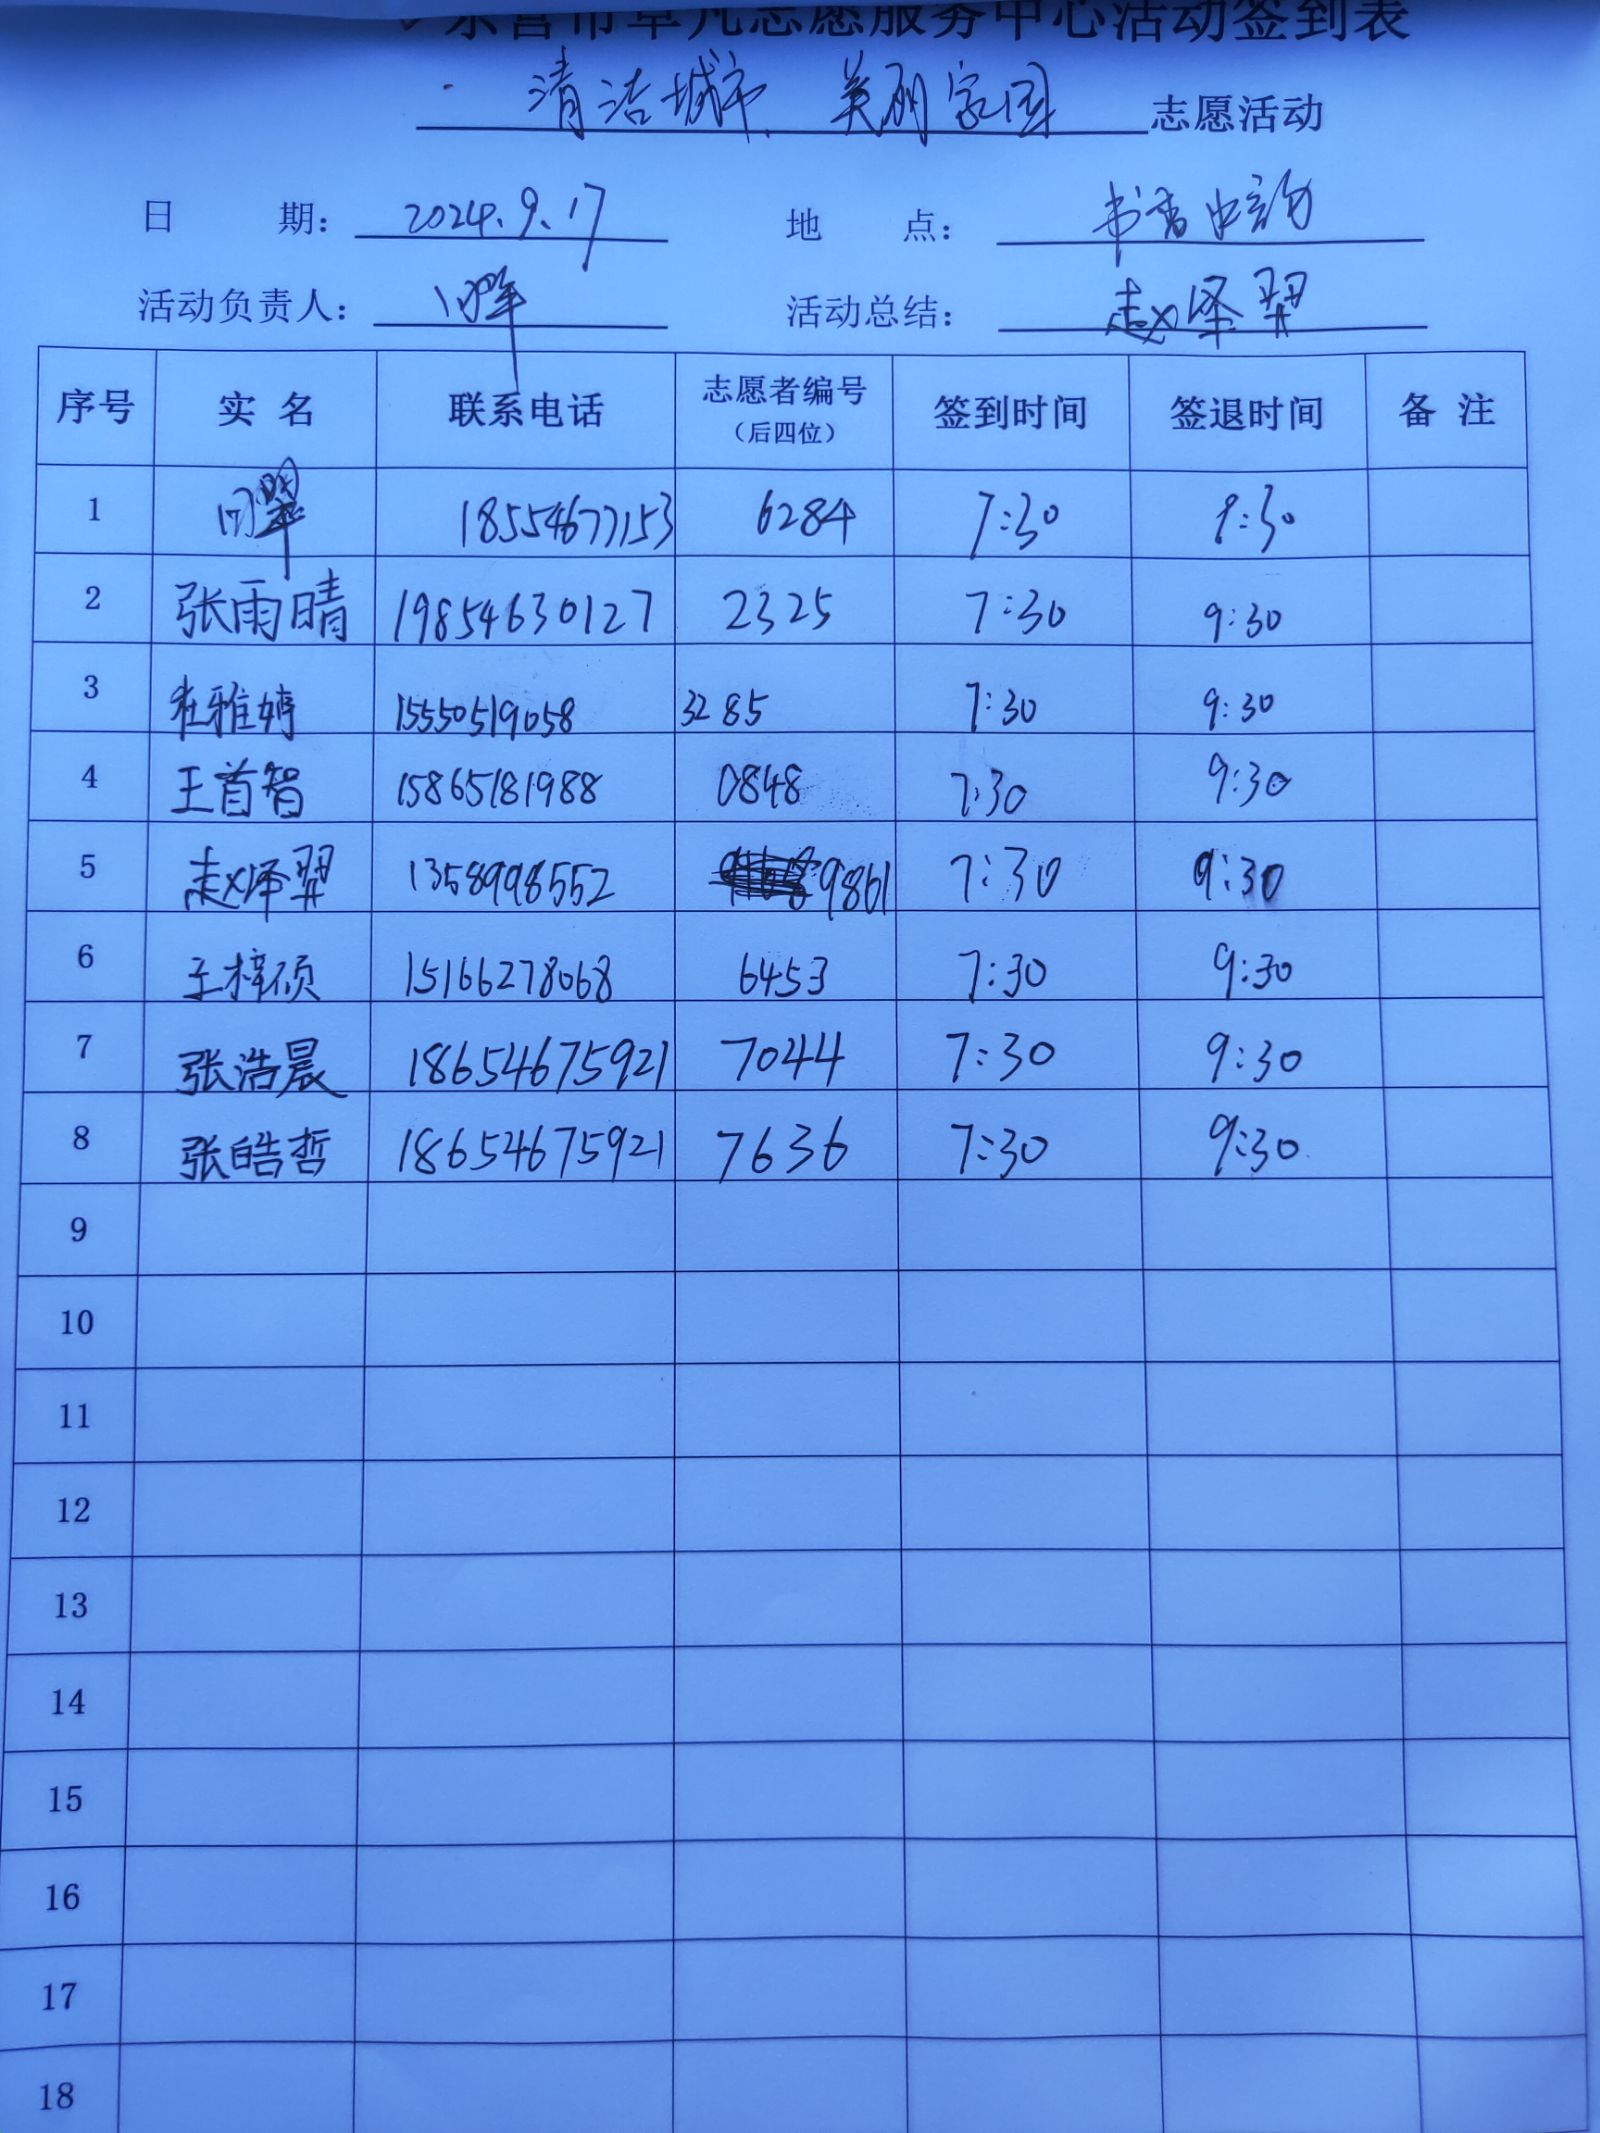 东营市草凡志愿服务中心活动签到表
清洁城市、美丽家园 志愿活动
日 期： 2024.9.17 地 点： 书香中韵
活动负责人： 活动总结： 赵泽羿
序号 实名 联系电话 志愿者编号（后四位） 签到时间 签退时间 备注
1 18554677153 6284 7:30 9:30
2 张雨晴 19854630127 2325 7:30 9:30
3 杜雅婷 15550519058 3285 7:30 9:30
4 王首智 15865181988 0848 7:30 9:30
5 赵泽羿 13589998552 9861 7:30 9:30
6 王梓硕 15166278068 6453 7:30 9:30
7 张浩晨 18654675921 7044 7:30 9:30
8 张皓哲 18654675921 7636 7:30 9:30
9
10
11
12
13
14
15
16
17
18